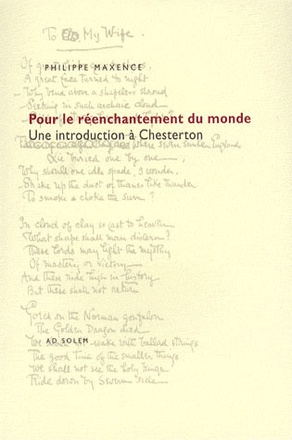 To My Wife.
Of great
PHILIPPE MAXENCE
A great face turned to night
Why bend above a shapeless shroud
Seeking in such archaic cloud
Pour le réenchantement du monde
Une introduction à Chesterton
Where seven sunken Englands
Lie buried one by one,
Why should one idle spade, I wonder,
Shake up the dust of thanes like thunder
To smoke & choke the sun?
In cloud of clay so cast to heaven
What shape shall man discern?
These lords may light the mystery
Of mastery or victory
And these ride high in history
But these shall not return
Gored on the Norman gonfalon
The Golden Dragon died
AD SOLEM
We shall not wake with ballad strings
The good time of the smaller things
We shall not see the holy kings
Ride down by Severn side